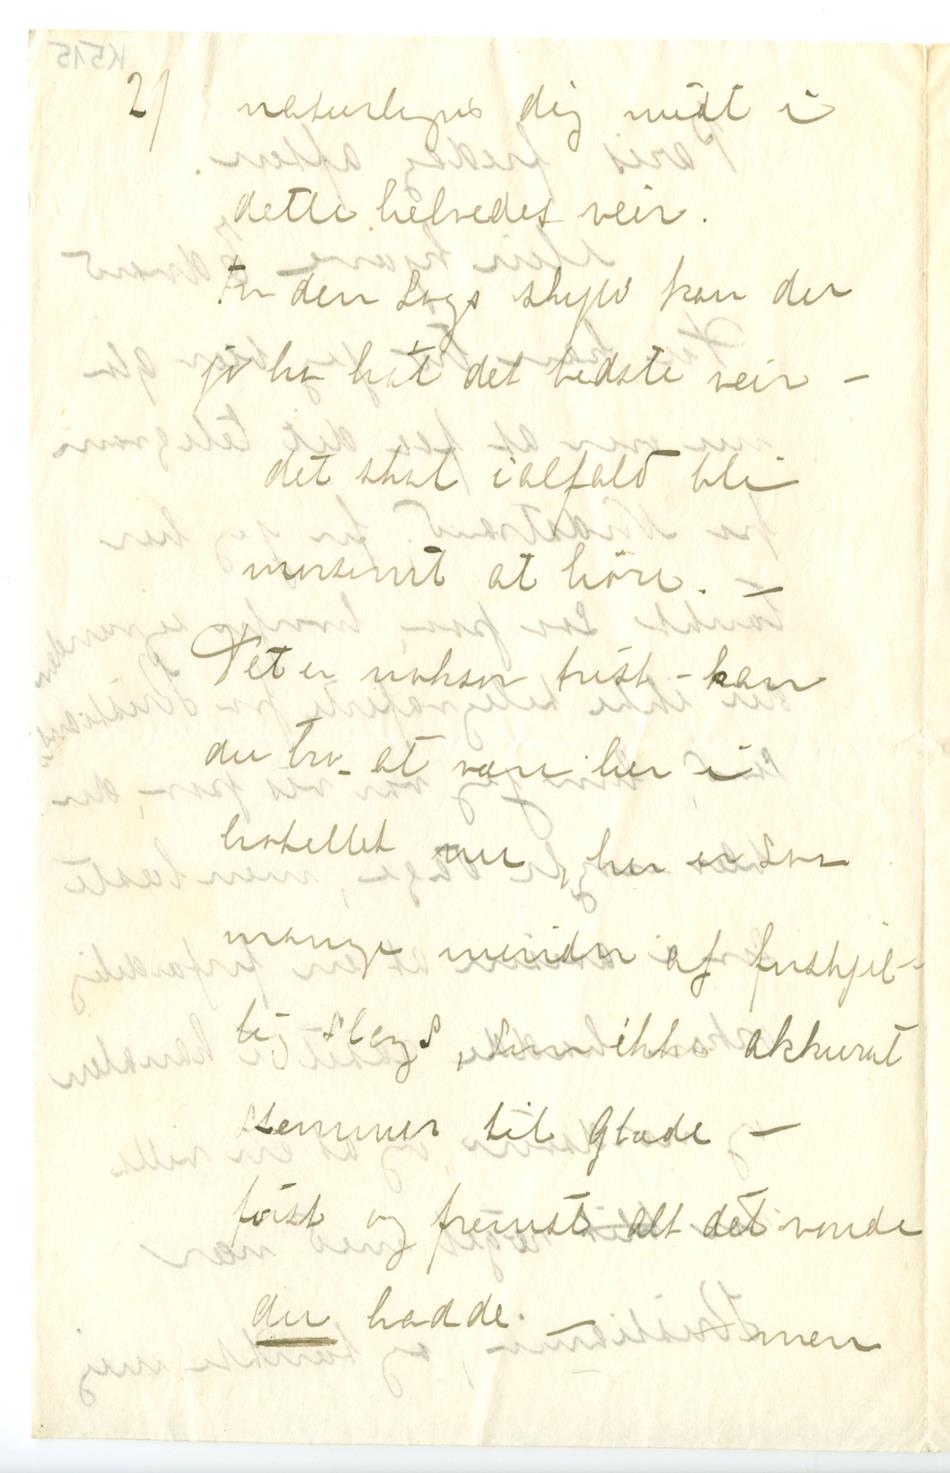 2/ naturligvis dig midt i
dette helvedes veir.
For den Sags skyld kan der
jo ha hat det bedste veir –
det skal ialfald bli
morsomt at höre. –
Det er noksor trist – kan
du tro – at være her i
hotellet nu, her er saa
mange minder af forskjel-
lig slags, som ikke akkurat
stemmer til glæde –
först og fremst alt det vonde
du hadde – men